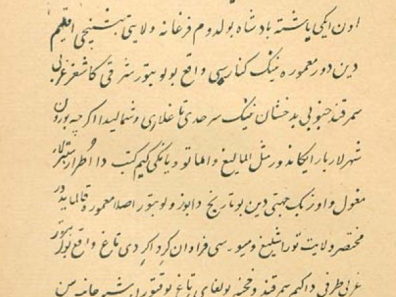 اون ایکی یاشته پادشاه بولدوم فرغانه ولایتی بیشنجی اقلیم
دین دور معموره نینک کناریسی واقع بولوبتور شرقی کاشغر غربی
سمرقند جنوبی بدخشان نینک سرحدی تاغلاری وشمالیدا اکرچه بورون
شهرلار بار ایکاندور مثل المالیغ و الماتو و یانکی کیم کتب دا اطرار بیتیرلار
مغول و اوزبک جهتی دین بو تاریخ دا بوزولوبتور اصلا معموره قالمایدور
مختصر ولایت تور اشلیغ و میوه سی فراوان کرداکردی تاغ واقع بولوبتور
غربی طرفی دا کیم سمرقند و خجند بولغای تاغ یوقتور